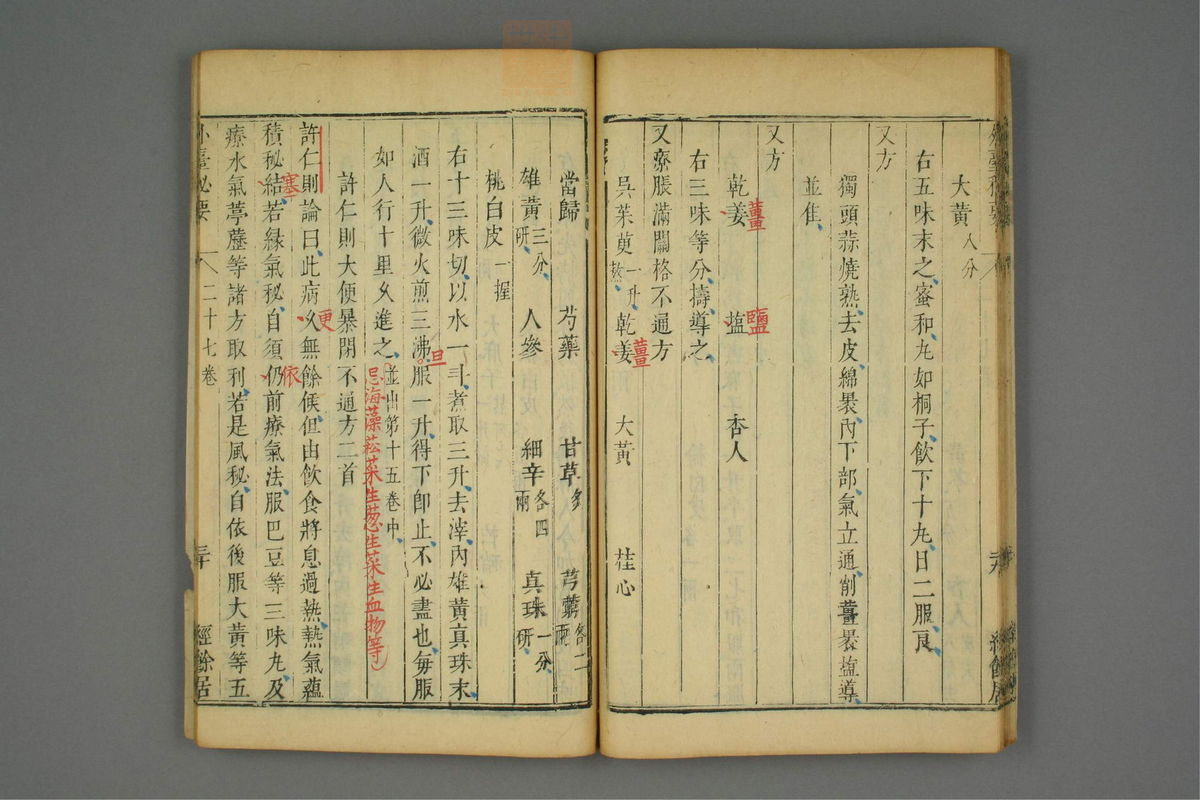 大黃八分
右五味末之蜜和丸如桐子飲下十九日二服良
又方
獨頭蒜燒熟去皮綿褁內下部氣立通削薑褁塩導
並隹
又方
乾姜 塩 杏人
薑 鹽
右三味等分擣導之
又療脹滿關格不通方
吳茱萸一升熬 乾姜 大黃 桂心
薑
當歸 芍藥 甘草炙 芎藭各二兩
雄黃三分研 人參 細辛各四兩 真珠一分研
桃白皮一握
右十三味切以水一斗煮取三升去滓內雄黃真珠末
酒一升微火煎三沸服一升得下卽止不必盡也每服
旦
如人行十里乆進之並出第十五卷中
忌海藻菘菜生葱生菜生血物等
許仁則大便暴閉不通方二首
許仁則論曰此病乆無餘候但由飲食將息過熱熱氣蘊
更
積秘結若緣氣秘自須仍前療氣法服巴豆等三味丸及
塞 依
療水氣葶藶等諸方取利若是風秘自依後服大黃等五
外臺秘要 二十七卷 三十 經餘居